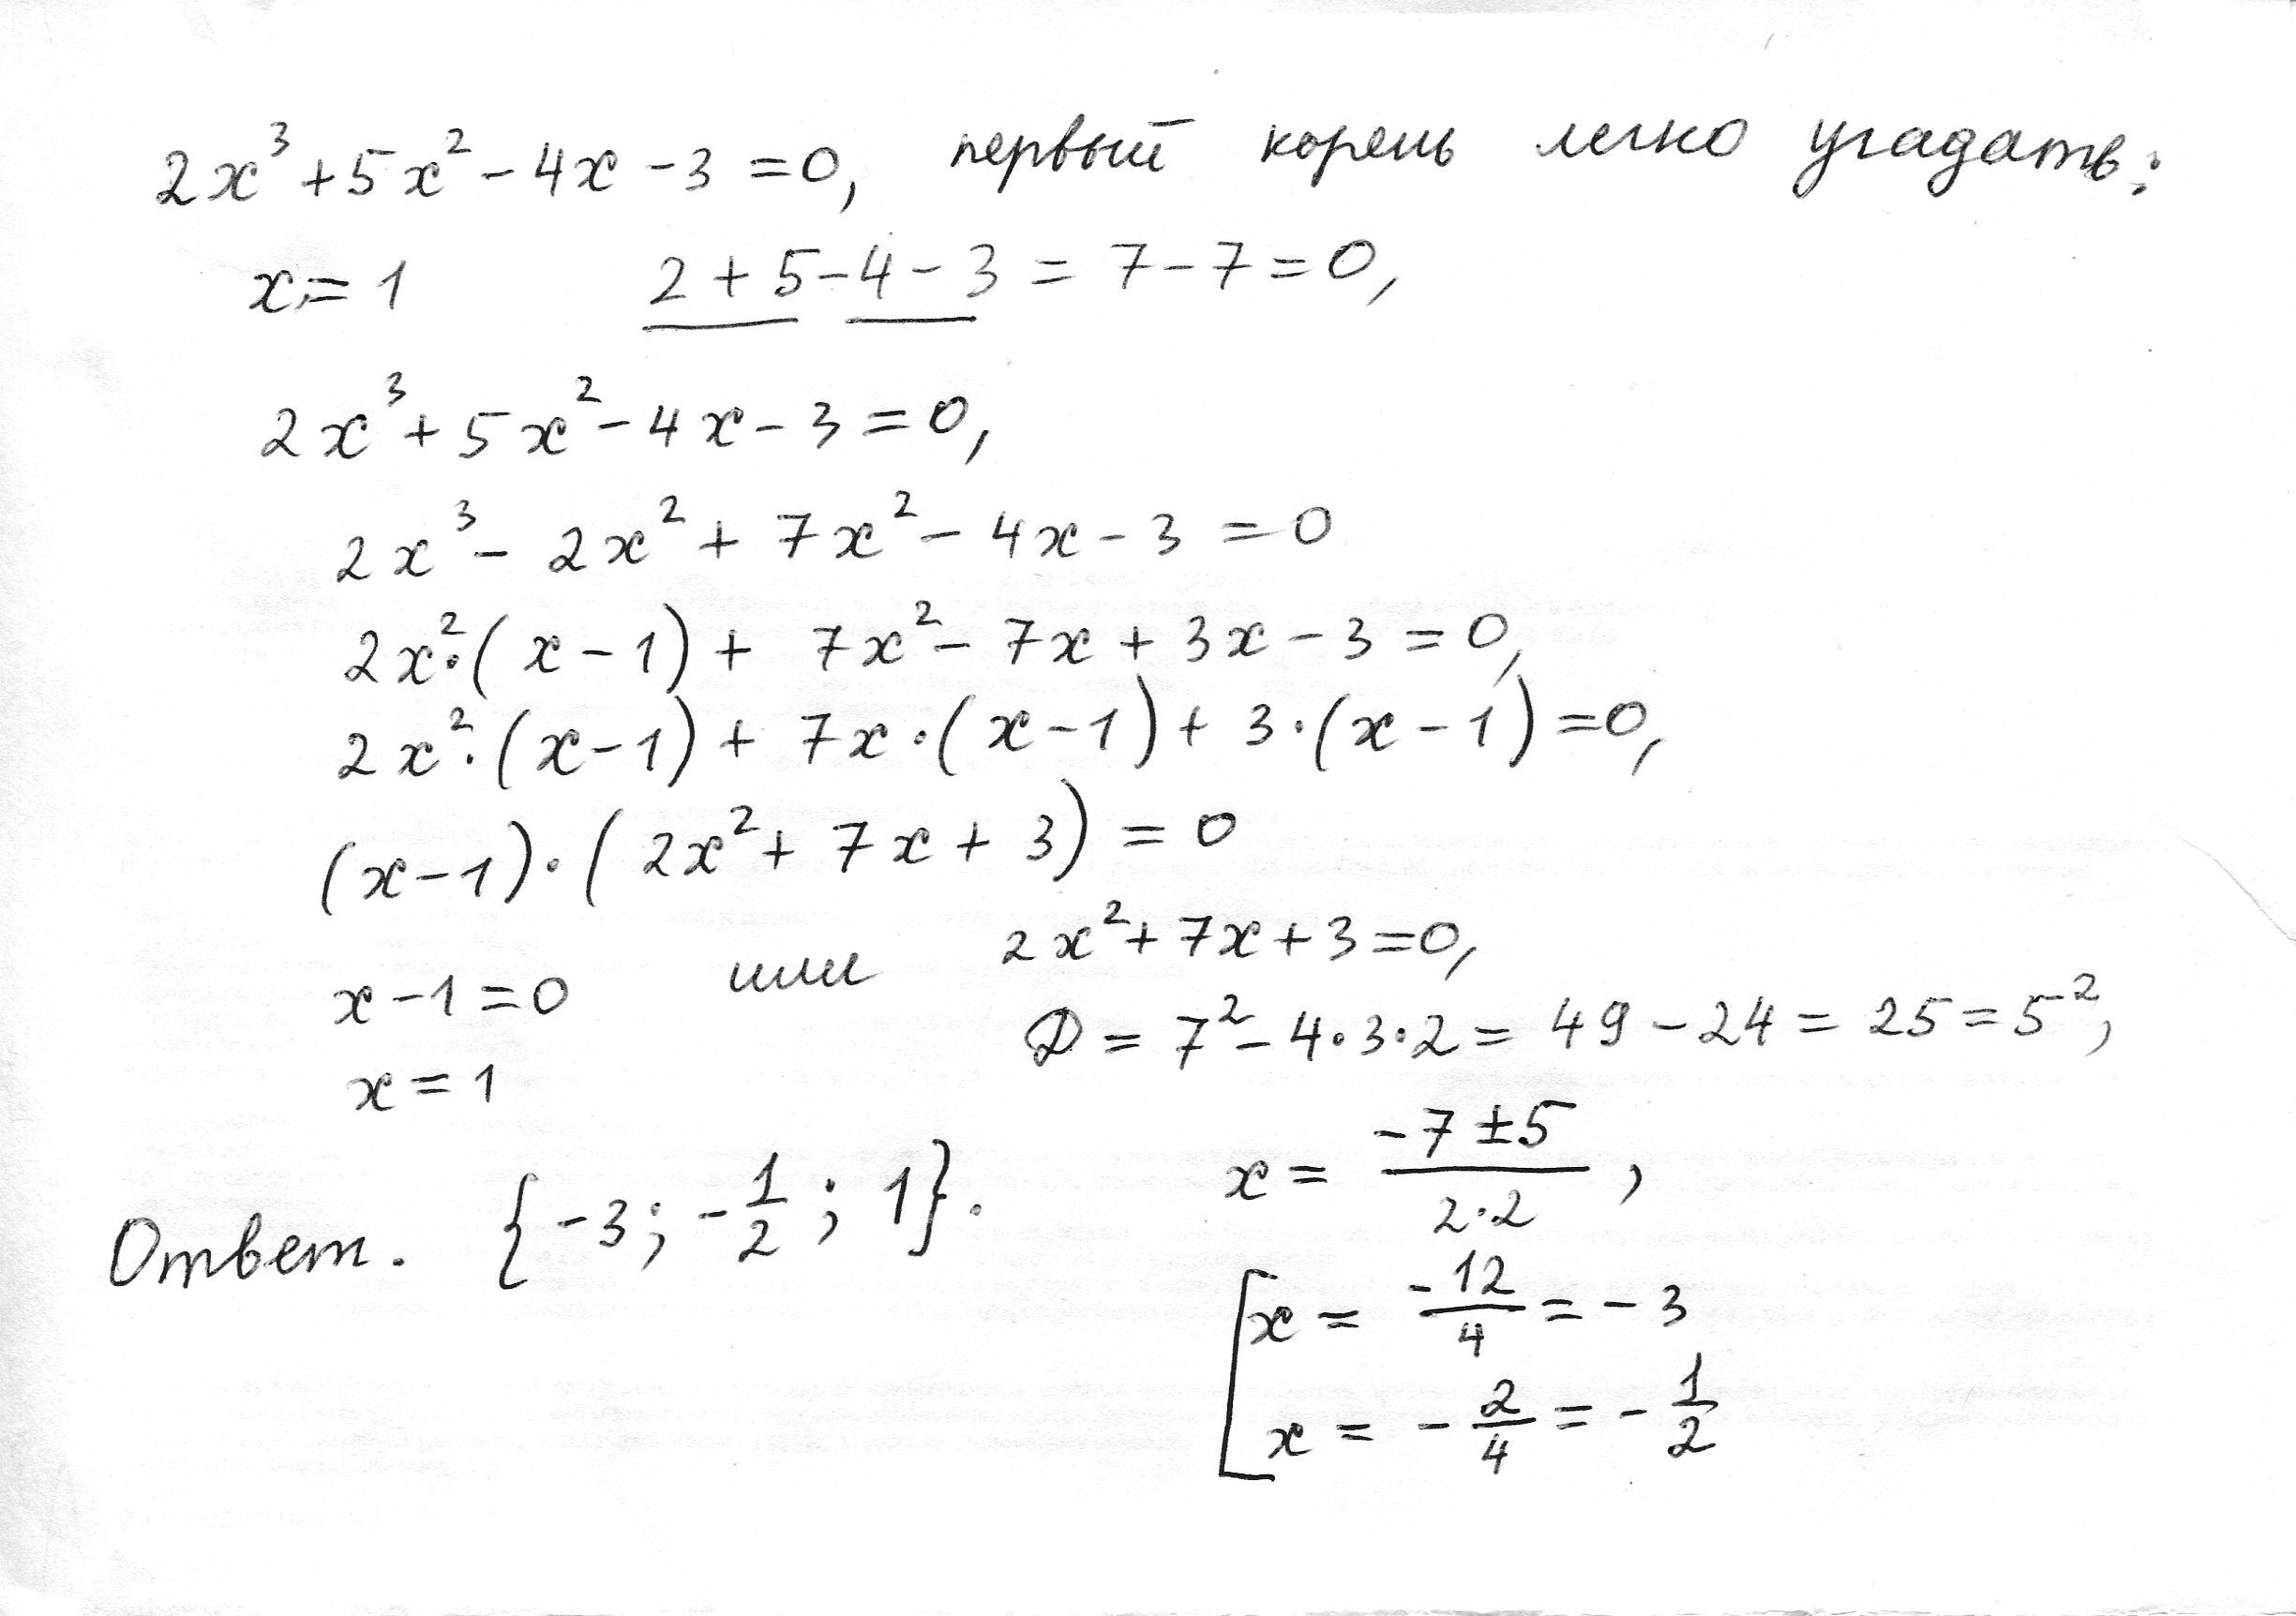 2x³ + 5x² - 4x - 3 = 0, первый корень легко угадать:
x = 1 2 + 5 - 4 - 3 = 7 - 7 = 0,
2x³ + 5x² - 4x - 3 = 0,
2x³ - 2x² + 7x² - 4x - 3 = 0
2x²·(x - 1) + 7x² - 7x + 3x - 3 = 0,
2x²·(x - 1) + 7x·(x - 1) + 3·(x - 1) = 0,
(x - 1)·(2x² + 7x + 3) = 0
x - 1 = 0 или 2x² + 7x + 3 = 0,
x = 1
D = 7² - 4·3·2 = 49 - 24 = 25 = 5²,
x = (-7 ± 5)/(2·2),
[ x = -12/4 = -3
x = -2/4 = -1/2
Ответ. {-3; -1/2; 1}.